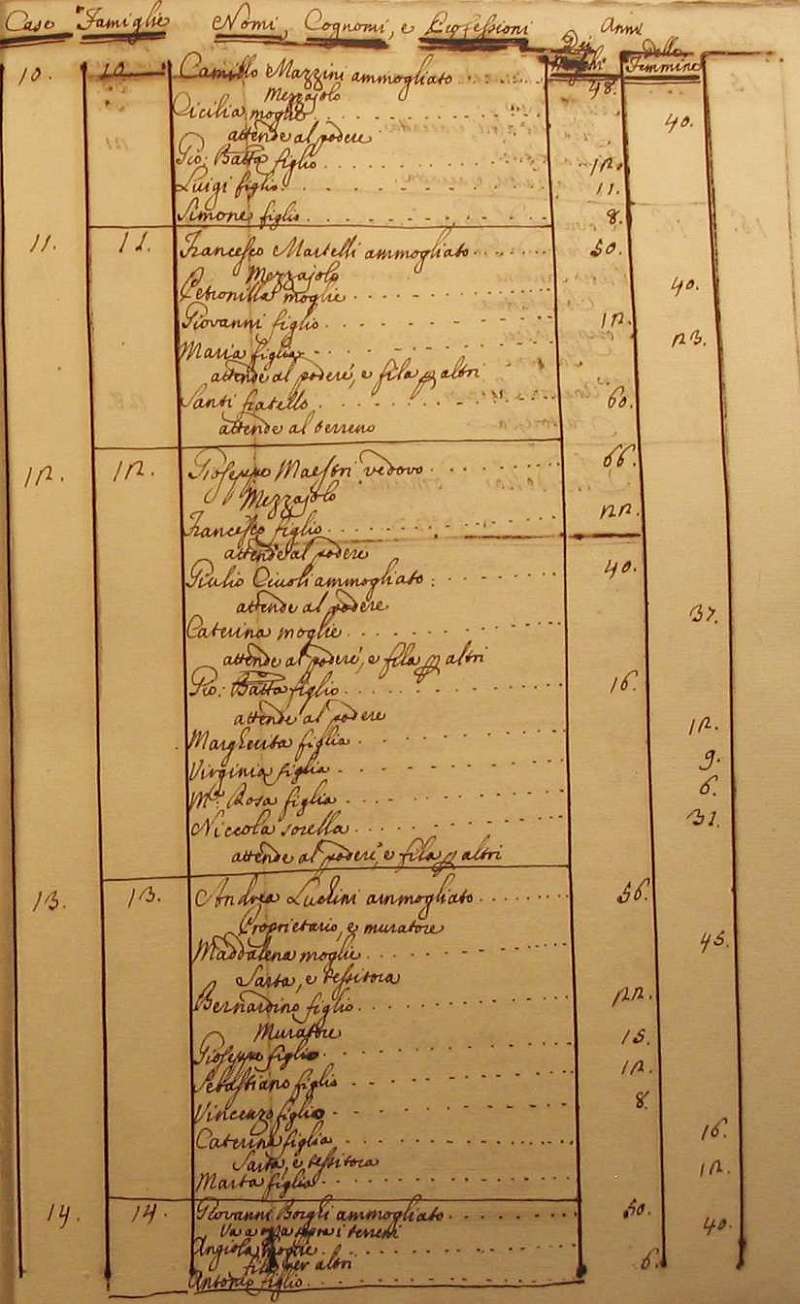 Case Famiglie Nomi, Cognomi, e Professioni Anni
Dei Maschi delle Femmine
10. 10. Camillo Mazzini ammogliato 48.
Mezzajolo
Cicilia moglie 40.
attende al podere
Gio: Batta figlio 12.
Luigi figlio 11.
Simone figlio 8.
11. 11. Francesco Martelli ammogliato 50.
Mezzajolo
Petronilla moglie 40.
Giovanni figlio 12.
Maria figlia 23.
attende al podere, e fila p altri
Santi fratello 60.
attende al terreno
12. 12. Gioseppe Maestri vedovo 66.
Mezzajolo
Francesco figlio 22.
attende al podere
Giulio Civoli ammogliato 40.
attende al podere
Caterina moglie 37.
attende al podere, e fila p altri
Gio: Batta figlio 16.
attende al podere
Margherita figlia 12.
Virginia figlia 9.
M.a Rosa figlia 6.
Niccola sorella 31.
attende al podere, e fila p altri
13. 13. Andrea Luchini ammogliato 56.
Proprietario, e muratore
Maddalena moglie 45.
Sarta, e tessitora
Bernardino figlio 22.
Muratore
Gioseppe figlio 15.
Sebastiano figlio 12.
Vincenzo figlio 8.
Caterina figlia 16.
Sarta, e tessitora
Marta figlia 12.
14. 14. Giovanni Borghi ammogliato 50.
Va a opra sopra i terreni
Angiola moglie 40.
fila per altri
Antonio figlio 6.